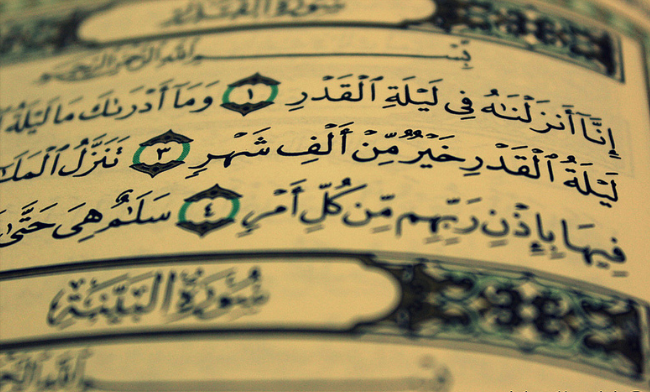 سُورَةُ الْقَدْرِ
بِسْمِ اللَّهِ الرَّحْمَٰنِ الرَّحِيمِ
إِنَّآ أَنزَلْنَٰهُ فِى لَيْلَةِ ٱلْقَدْرِ ١ وَمَآ أَدْرَىٰكَ مَا لَيْلَةُ
لَيْلَةُ ٱلْقَدْرِ خَيْرٌ مِّنْ أَلْفِ شَهْرٍ ٣ تَنَزَّلُ
فِيهَا بِإِذْنِ رَبِّهِم مِّن كُلِّ أَمْرٍ ٤ سَلَٰمٌ هِىَ حَتَّىٰ
سُورَةُ الْبَيِّنَةِ